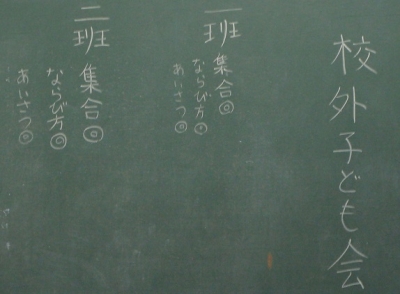 校外子ども会
一班
集合◎
ならび方◎
あいさつ◎
二班
集合◎
ならび方◎
あいさつ◎